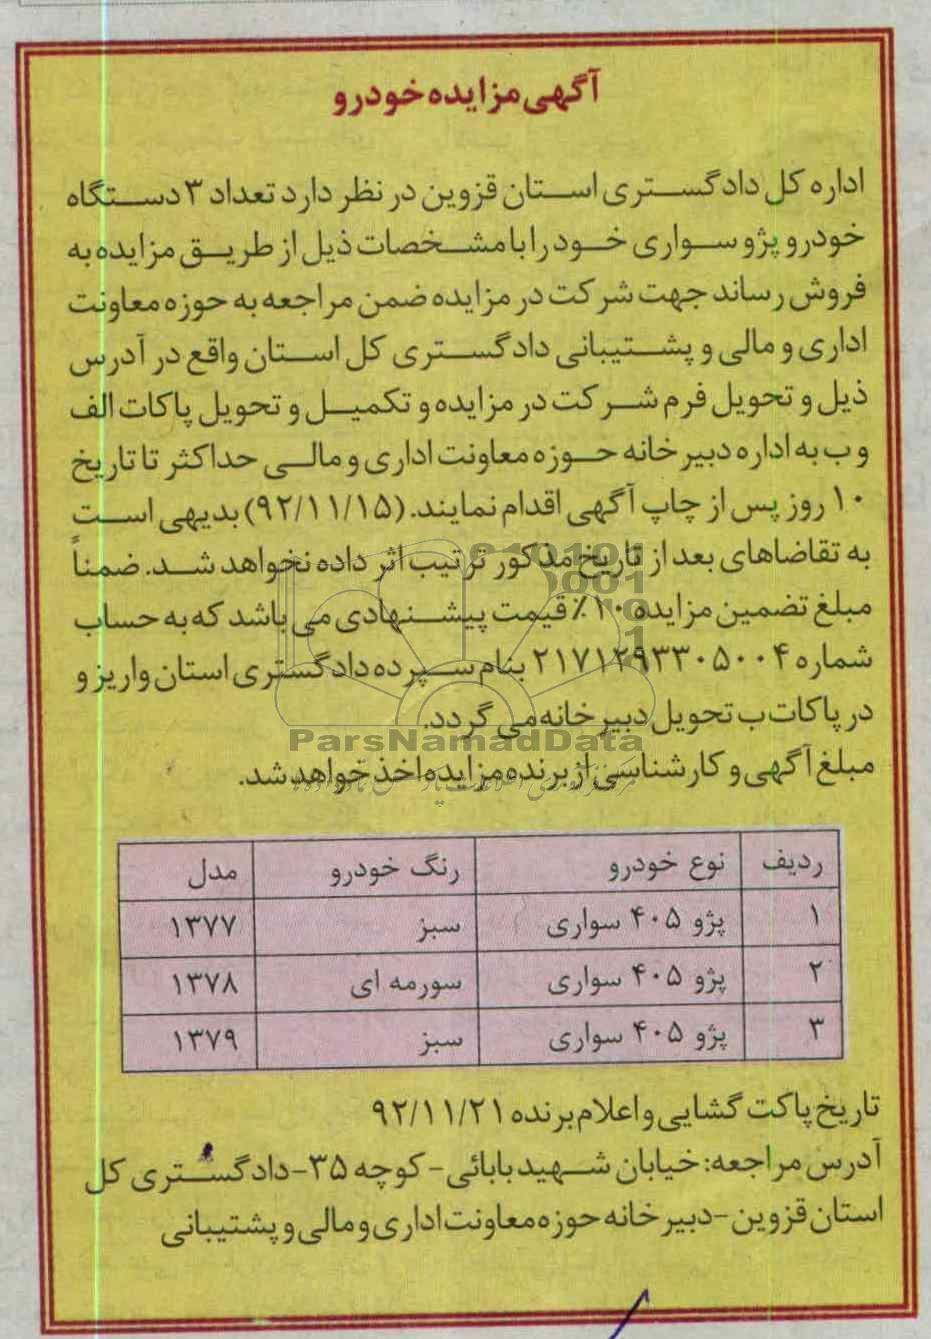 آگهی مزایده خودرو
اداره کل دادگستری استان قزوین در نظر دارد تعداد ۳ دستگاه
خودرو پژو سواری خود را با مشخصات ذیل از طریق مزایده به
فروش رساند جهت شرکت در مزایده ضمن مراجعه به حوزه معاونت
اداری و مالی و پشتیبانی دادگستری کل استان واقع در آدرس
ذیل و تحویل فرم شرکت در مزایده و تکمیل و تحویل پاکات الف
و ب به اداره دبیرخانه حوزه معاونت اداری و مالی حداکثر تا تاریخ
۱۰ روز پس از چاپ آگهی اقدام نمایند. (۹۲/۱۱/۱۵) بدیهی است
به تقاضاهای بعد از تاریخ مذکور ترتیب اثر داده نخواهد شد. ضمناً
مبلغ تضمین مزایده ۱۰٪ قیمت پیشنهادی می باشد که به حساب
شماره ۲۱۷۱۲۹۳۳۰۵۰۰۴ بنام سپرده دادگستری استان واریز و
در پاکات ب تحویل دبیرخانه می گردد.
ParsNamadData
مبلغ آگهی و کارشناسی از برنده مزایده اخذ خواهد شد.
ردیف نوع خودرو رنگ خودرو مدل
۱ پژو ۴۰۵ سواری سبز ۱۳۷۷
۲ پژو ۴۰۵ سواری سورمه ای ۱۳۷۸
۳ پژو ۴۰۵ سواری سبز ۱۳۷۹
تاریخ پاکت گشایی و اعلام برنده ۹۲/۱۱/۲۱
آدرس مراجعه: خیابان شهید بابائی - کوچه ۳۵- دادگستری کل
استان قزوین - دبیرخانه حوزه معاونت اداری و مالی و پشتیبانی